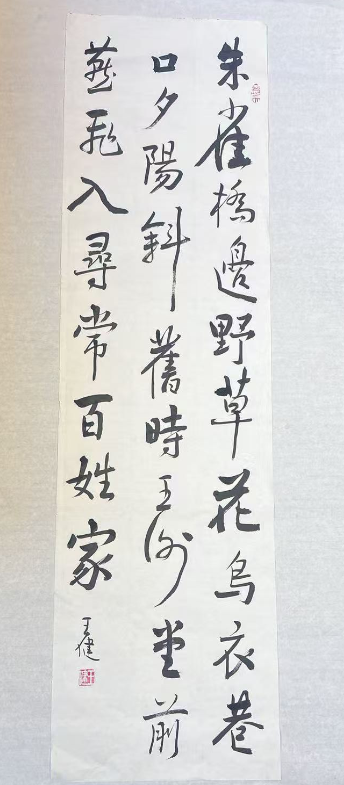 朱雀橋邊野草花烏衣巷
口夕陽斜舊時王謝堂前
燕飛入尋常百姓家
王健